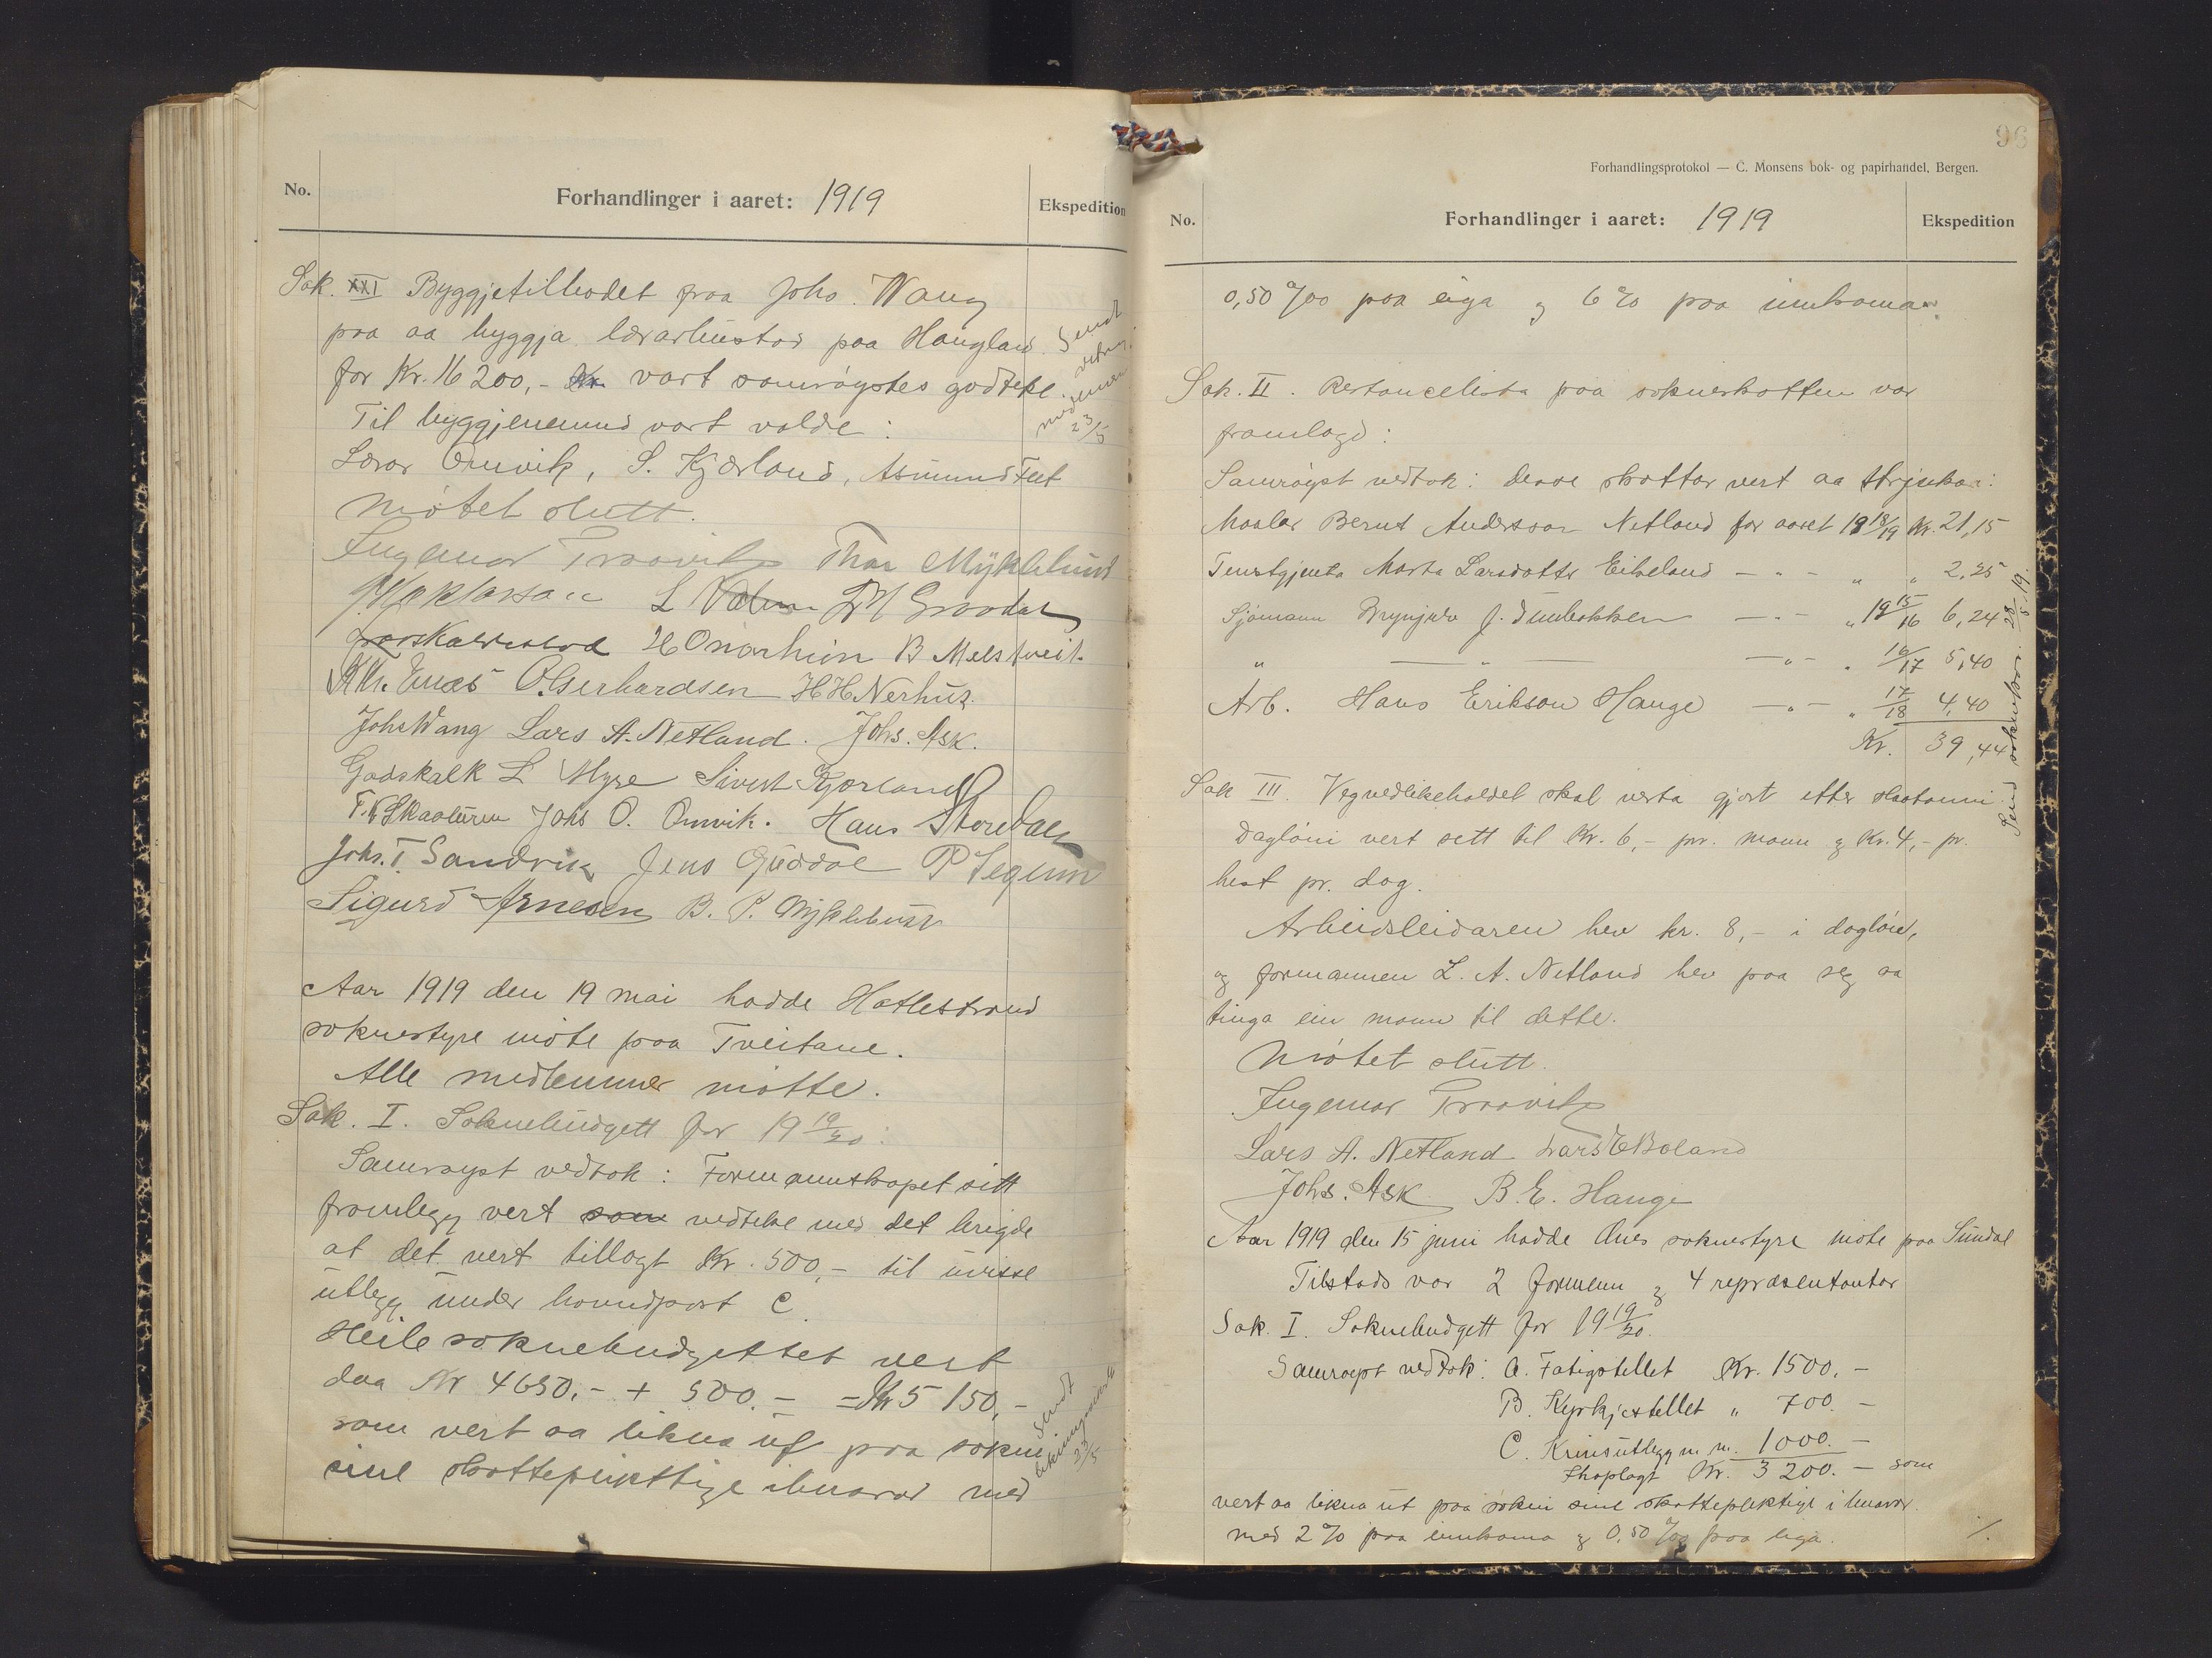 No.
Forhandlinger i aaret: 1919
Ekspedition
Sak. XXI Byggjetilbodet fraa Johs. Wang
paa aa byggja lærarbustad paa Haugland
for Kr. 16 200,- vart samrøystes godteke.
Til byggjenemnd vart valde:
Lærar Omvik, S. Kjærland, Asmund Teet
Møtet slutt.
Sendt
23/5
Ingemar Traavik Thor Myklebust
H Onarheim B Melstveit.
O. Gerhardsen H H Nerhus.
Johs Wang Lars A. Netland. Johs. Ask.
Godskalk L Myre Sivert Kjærland
Johs O. Omvik. Hans Storedale
Johs. T. Sandvik Jens Guddal P Tegum
Sigurd Arnesen B. P. Myklebust
Aar 1919 den 19 mai hadde Hatlestrand
soknestyre møte paa Tveitane.
Alle medlemmer møtte.
Sak. I. Soknebudgett for 19 19/20:
Samrøyst vedtok: Formannskapet sitt
framlegg vert som vedteke med det brigde
at det vert tillagt Kr. 500,- til uvisse
utlegg under hovudpost C
Heile soknebudgettet vert
daa Kr 4650.- + 500.- = Kr 5 150,-
som vert aa likna ut paa sokni
sine skattepliktige ibuarar med
Sendt
23/5
96
Forhandlingsprotokol — C. Monsens bok- og papirhandel, Bergen.
No.
Forhandlinger i aaret: 1919
Ekspedition
0,50 ‰ paa eiga og 6 % paa innkoma.
Sak. II. Restancelista paa sokneskatten var
framlagd:
Samrøyst vedtok: desse skattar vert aa strjuka:
Maalar Bernt Andersson Netland for aaret 19 18/19 Kr. 21,15
Tenestgjenta Marta Larsdotter Eikeland — " — " " 2,25
Sjømann Brynjulv J. — " — " 19 15/16 6,24
" — " — — " — " 16/17 5,40
Arb. Hans Erikson Hauge — " — " 17/18 4,40
Kr. 39,44
Send 28/5 19.
Sak III. Vegvedlikehaldet skal verta gjort etter
Dagløni vert sett til Kr. 6,- pr. mann og Kr. 4,- pr.
hest pr. dag.
Arbeidsleidaren hev kr. 8,- i dagløn,
og formannen L. A. Netland hev paa seg aa
tinga ein mann til dette.
Møtet slutt.
Ingemar Traavik
Lars A. Netland Lars E Bøland
Johs. Ask B. E. Hauge
Aar 1919 den 15 juni hadde Ænes soknestyre møte paa Sundal
Tilstads var 2 formenn og 4 repræsentantar
Sak. I. Soknebudgett for 19 19/20.
Samrøyst vedtok: A. Fatigstellet Kr. 1500,-
B. Kyrkjestellet " 700.-
C. Krinsutlegg m. m. 1000.-
Ihoplagt Kr. 3 200.- som
vert aa likna ut paa sokni sine skattepliktige ibuarar
med 2 % paa innkoma og 0,50 ‰ paa eiga.
./.